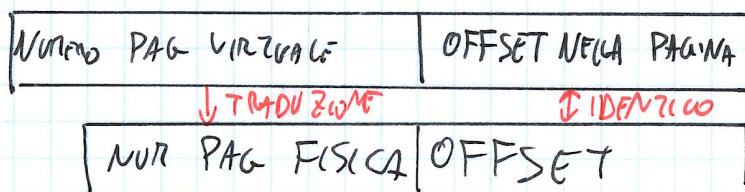 NUMERO PAG VIRTUALE OFFSET NELLA PAGINA
↓ TRADUZIONE ↕ IDENTICO
NUM PAG FISICA OFFSET